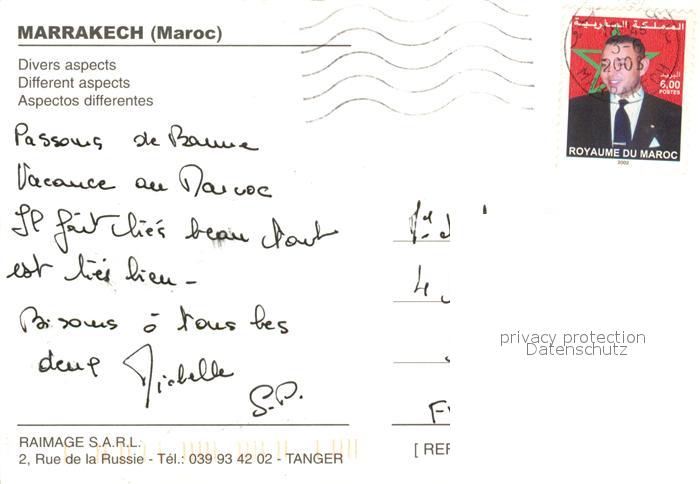 MARRAKECH (Maroc)
Divers aspects
Different aspects
Aspectos differentes
المملكة المغربية
2003
البريد
6,00
POSTES
ROYAUME DU MAROC
2002
Passons de Bonne
Vacance au Maroc
Il fait très beau tout
est très bien -
Bisous à tous les
deux Michelle
S.P.
4
privacy protection
Datenschutz
RAIMAGE S.A.R.L.
2, Rue de la Russie - Tél.: 039 93 42 02 - TANGER
[ REF